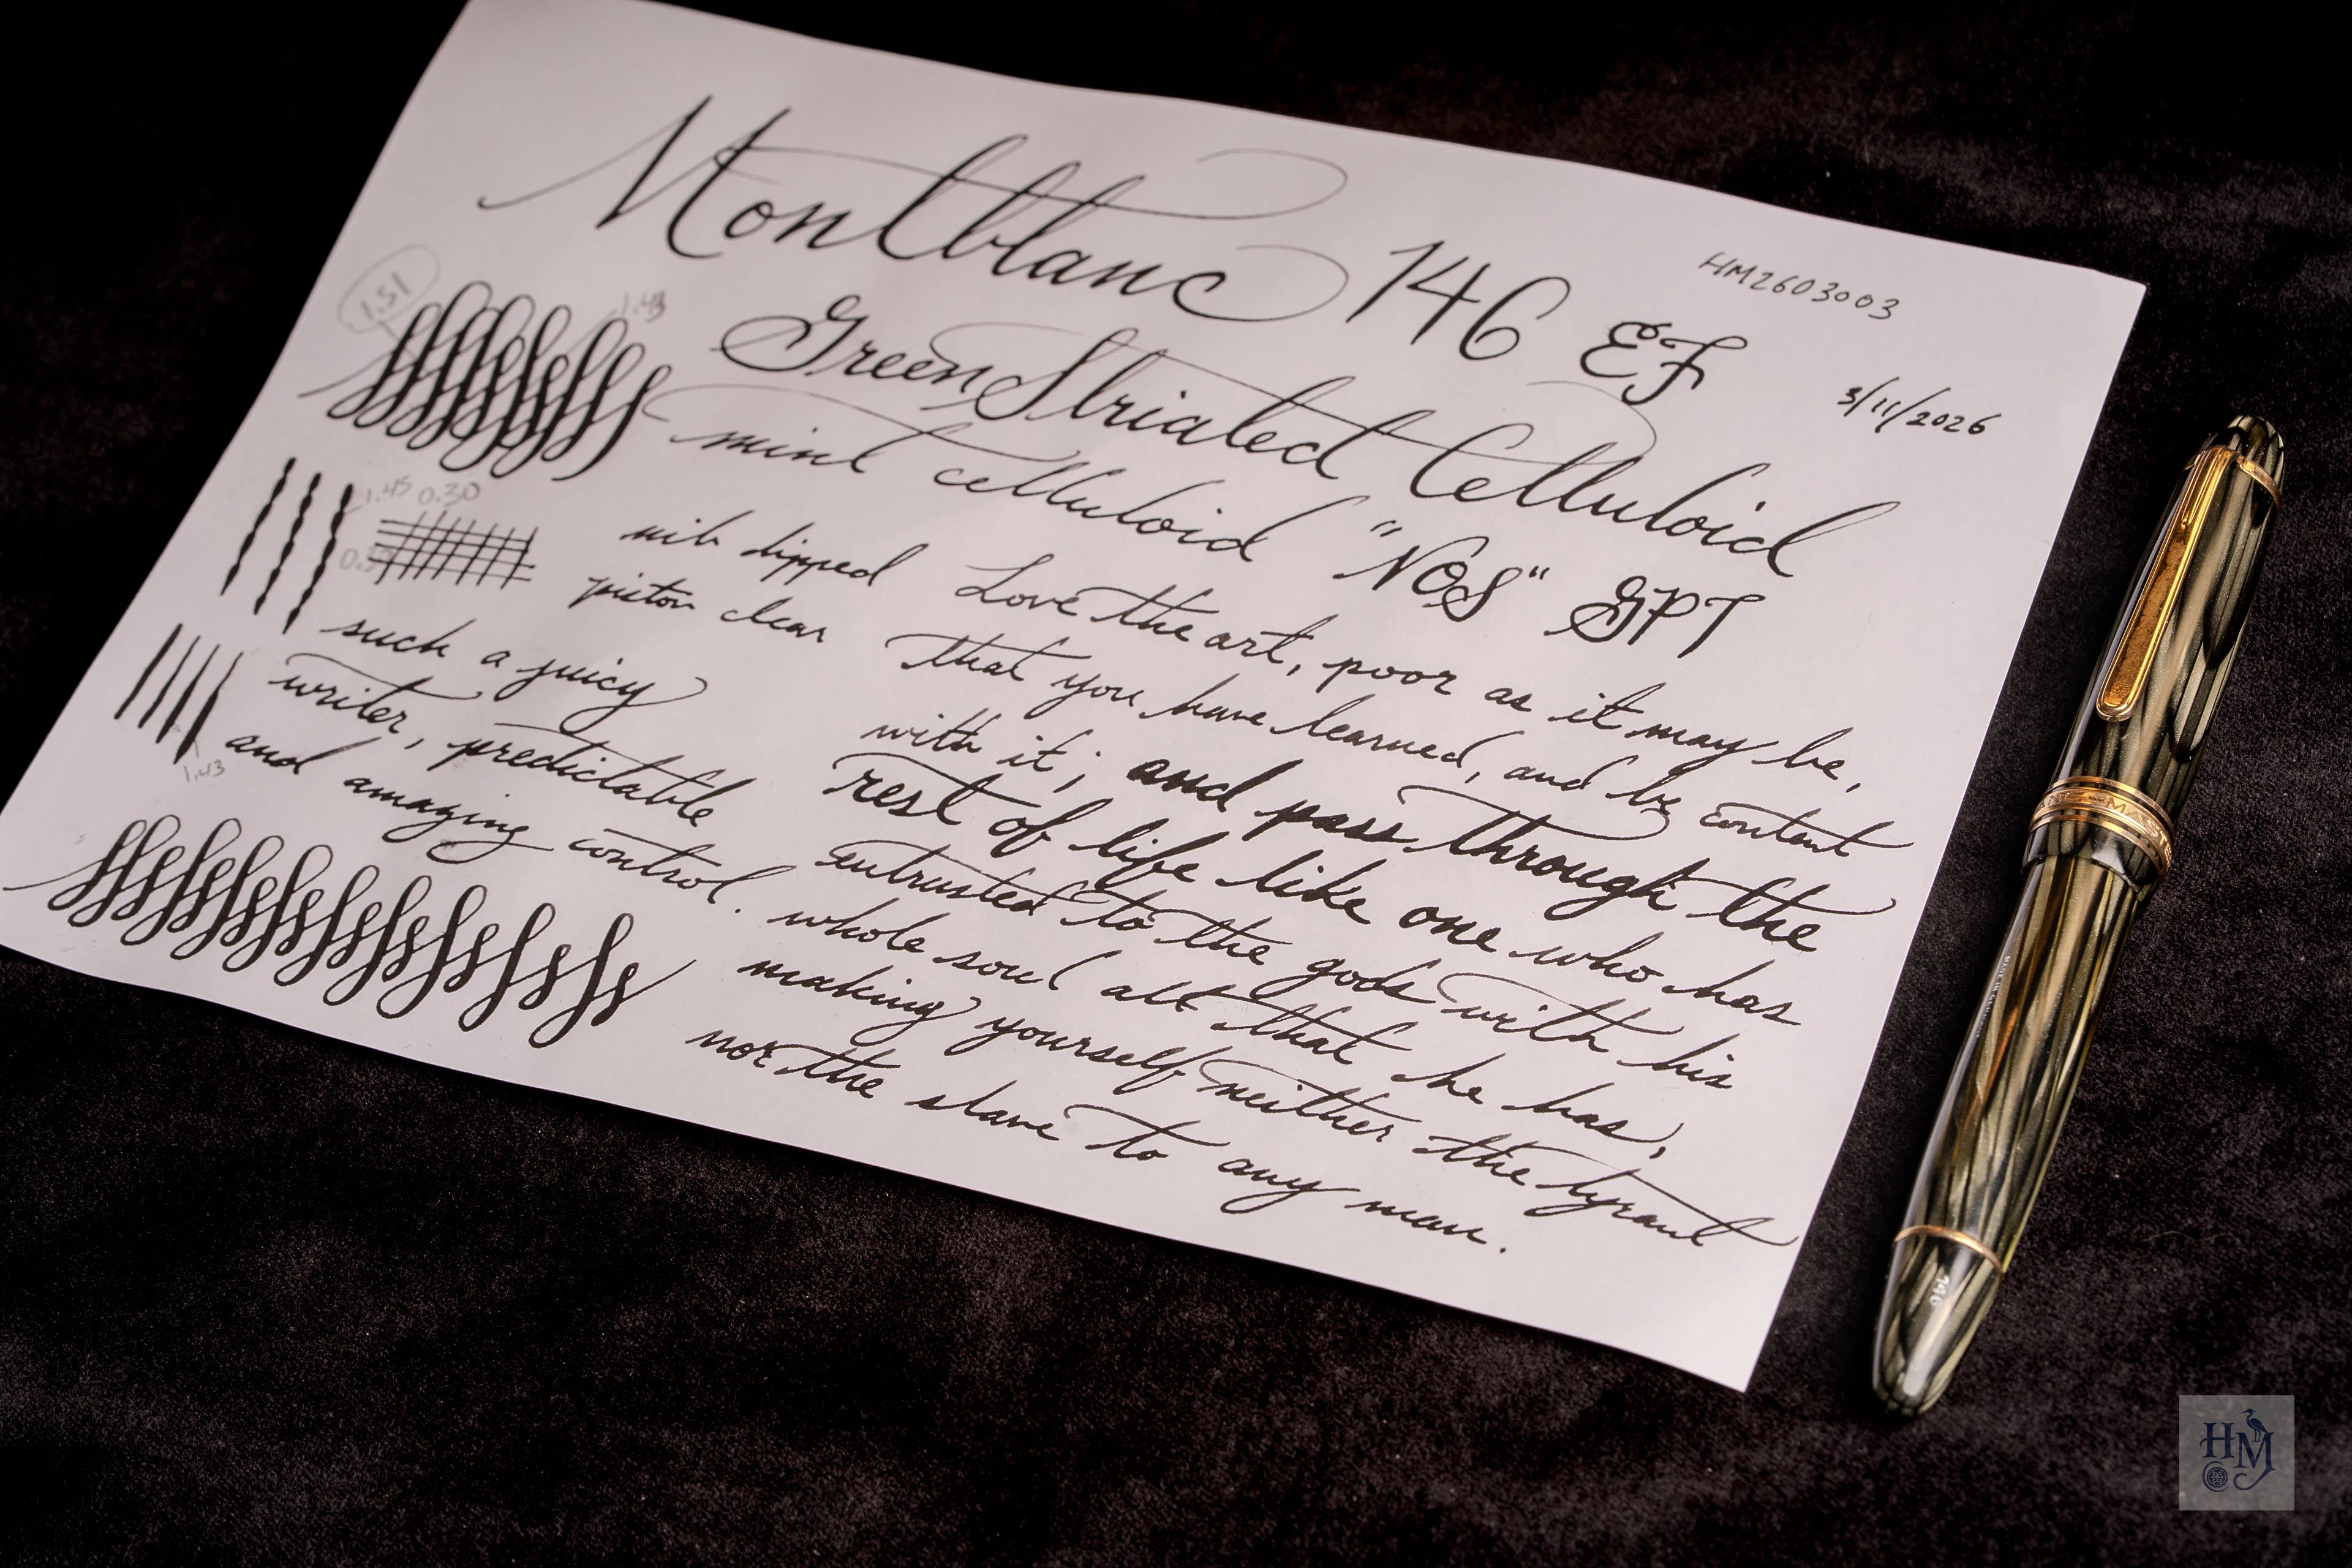 Montblanc 146 EF
HM2603003
Green Striated Celluloid
3/11/2026
mint celluloid "NOS" GPT
1.51
1.43
1.45 0.30
nib dipped
piston clear
such a juicy
writer, predictable
and amazing control.
1.43
Love the art, poor as it may be,
that you have learned, and be content
with it; and pass through the
rest of life like one who has
entrusted to the gods with his
whole soul all that he has,
making yourself neither the tyrant
nor the slave to any man.
146
HM